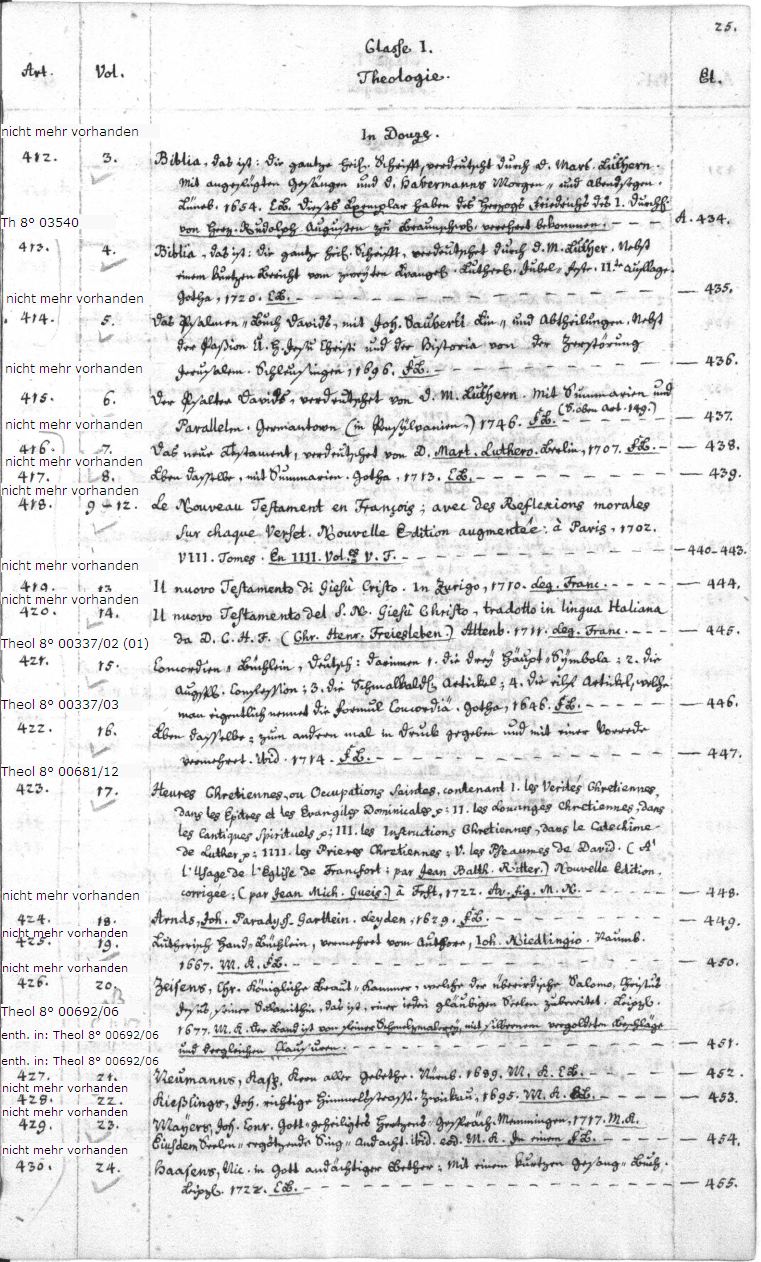 25.
Classe I.
Art. Vol. Theologie. Et.
nicht mehr vorhanden
In Douze.
412. 3. Biblia, das ist: die gantze heil. Schrifft, verdeutscht durch D. Mart. Luthern.
Mit angefügten Gesängen und D. Havermanns Morgen- und Abendsegen.
Lüneb. 1654. EB. Dieses Exemplar haben des Herzogs Friedrichs des I. Durchl.
Th 8° 03540
von Herz. Rudolph Augusten zu Braunschw. verehret bekommen. A. 434.
413. 4. Biblia, das ist: die gantze heil. Schrifft, verdeutschet durch D. M. Luther. Nebst
einem kurtzen Bericht vom zweyten Evangel. Luther. Jubel-Feste. II.te Auflage.
Gotha, 1720. EB. 435.
nicht mehr vorhanden
414. 5. Das Psalmen-Buch Davids, mit Joh. Sauberti Ein- und Abtheilungen. Nebst
der Passion U. H. Jesu Christi und der Historia von der Zerstörung
Jerusalem. Schleusingen, 1696. FB. 436.
nicht mehr vorhanden
415. 6. Der Psalter Davids, verdeutschet von D. M. Luthern. Mit Summarien und
(S. oben Art. 149.)
Parallelen. Germantown (in Pensylvanien,) 1746. FB. 437.
nicht mehr vorhanden
416. 7. Das neue Testament, verdeutschet von D. Mart. Luthero. Berlin, 1707. FB. 438.
nicht mehr vorhanden
417. 8. Eben dasselbe, mit Summarien. Gotha, 1713. EB. 439.
nicht mehr vorhanden
418. 9-12. Le Nouveau Testament en François; avec des Reflexions morales
sur chaque Verset. Nouvelle Edition augmentée. à Paris, 1702.
VIII. Tomes. En IIII. Vol. V. F. 440-443.
nicht mehr vorhanden
419. 13 Il nuovo Testamento di Giesù Cristo. In Zurigo, 1710. Leg. Franc. 444.
nicht mehr vorhanden
420. 14. Il nuovo Testamento del S. N. Giesù Christo, tradotto in lingua Italiana
da D. C. H. F. (Chr. Henr. Freiesleben.) Altenb. 1711. Leg. Franc. 445.
Theol 8° 00337/02 (01)
421. 15. Concordien-Büchlein, Deutsch: darinnen 1. die drey Haupt-Symbola; 2. die
Augsp. Confession; 3. die Schmalkald. Artikel; 4. die Artikel, welche
man eigentlich nennet die Formul Concordiä. Gotha, 1646. FB. 446.
Theol 8° 00337/03
422. 16. Eben dasselbe; zum andern mal in druck gegeben und mit einer Vorrede
vermehret. Ibid. 1714. FB. 447.
Theol 8° 00681/12
423. 17. Heures Chretiennes, ou Occupations Saintes, contenant I. les Verités Chretiennes,
dans les Epitres et les Evangiles Dominicales p; II. les Louanges Chretiennes, dans
les Cantiques spirituels p; III. les Instructions Chretiennes, dans le Catechime
de Luther p; IIII. les Prieres Chretiennes; V. les Pseaumes de David. (A
l'Usage de l'Eglise de Francfort; par Jean Balth. Ritter.) Nouvelle Edition,
corrigée; (par Jean Mich. Gueis.) à Frft, 1722. Av. fig. M. N. 448.
nicht mehr vorhanden
424. 18. Arnds, Joh. Paradyß-Gärtlein. Leyden, 1629. FB. 449.
nicht mehr vorhanden
425. 19. Lutherisch Hand-Büchlein, vermehret vom Authore, Joh. Niedlingio. Naumb.
1667. M. K. FB. 450.
nicht mehr vorhanden
426. 20. Zeisens, Chr. Königliche Braut-Kammer, welche der überirdische Salomo, Christus
Jesus, seiner Sulamithin, das ist, einer jeden gläubigen Seelen zubereitet. Leipz.
Theol 8° 00692/06
1677. M. K. Der Band ist von seiner Schmelzmalerey, mit silbernem vergoldeten Beschläge
enth. in: Theol 8° 00692/06
und dergleichen Clausuren. 451.
enth. in: Theol 8° 00692/06
427. 21. Neumanns, Casp. Kern aller Gebethe. Nürnb. 1689. M. K. EB. 452.
nicht mehr vorhanden
428. 22. Kießlings, Joh. richtige Himmelsstrasse. Zwickau, 1695. M. K. EB. 453.
nicht mehr vorhanden
429. 23. Mayers, Joh. Conr. Gott-geheiligtes Hertzens-Gespräch. Memmingen, 1717. M. K.
Eiusdem Seelen-ergötzende Sing-Andacht. Ibid. eod. M. K. In einem FB. 454.
nicht mehr vorhanden
430. 24. Haasens, Nic. in Gott andächtiger Bether; Mit einem kurtzen Gesang-Buch.
Leipz. 1722. EB. 455.